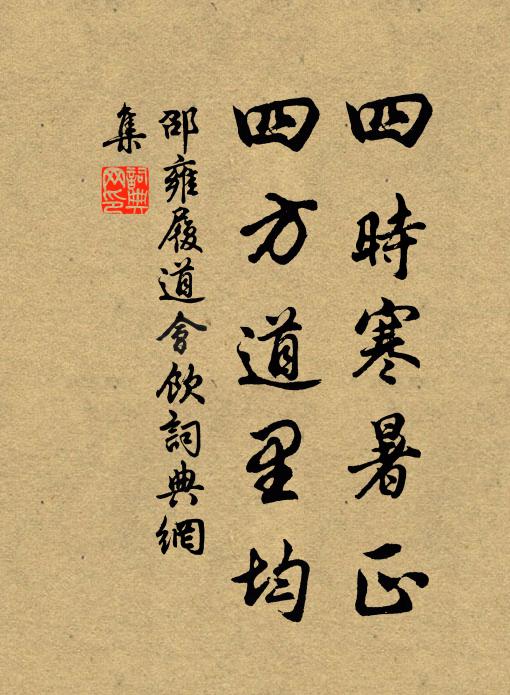 四時寒暑正
四方道里均
邵雍履道會飲詞典網
集
詞典
网印